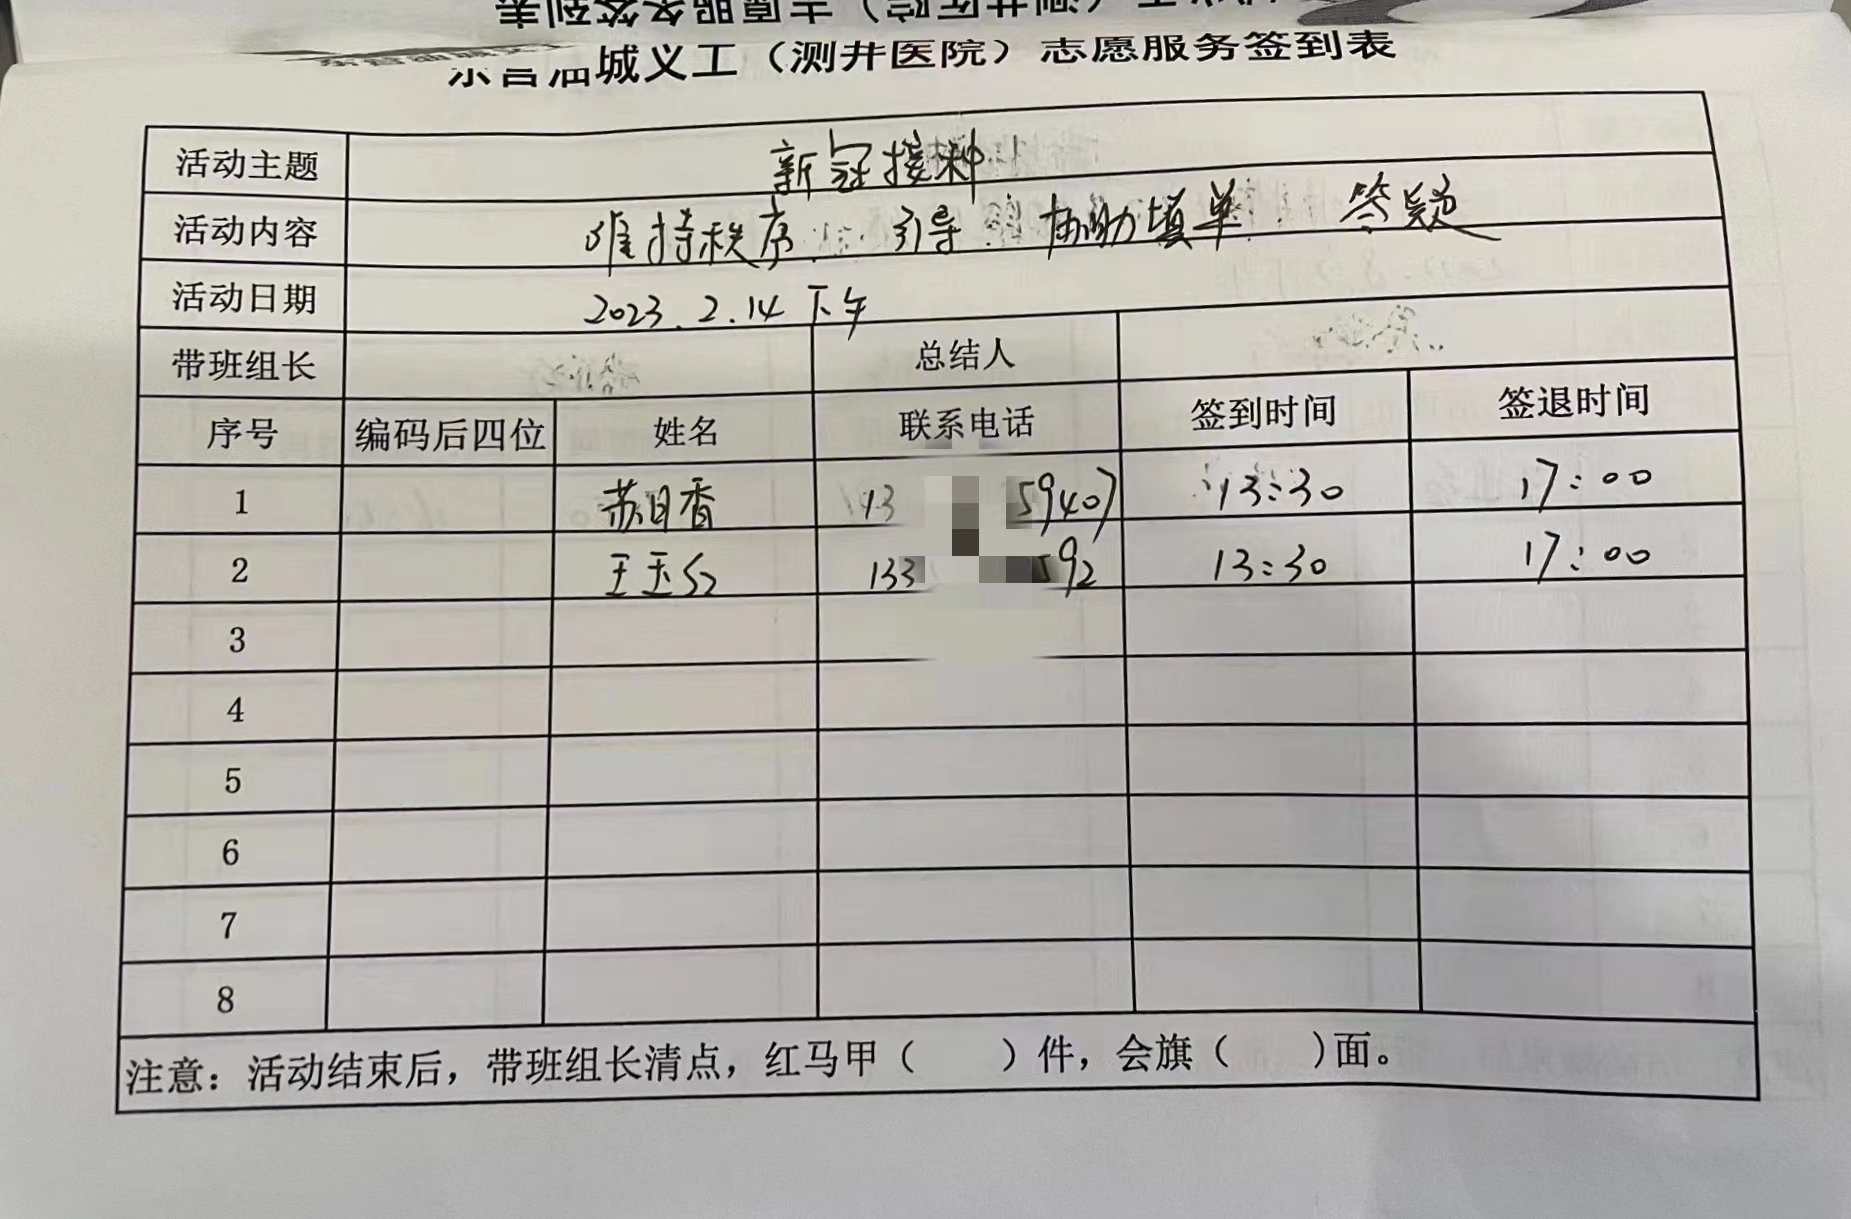 东营油城义工（测井医院）志愿服务签到表
活动主题 新冠接种
活动内容 维持秩序 引导 协助填单 答疑
活动日期 2023.2.14 下午
带班组长 总结人
序号 编码后四位 姓名 联系电话 签到时间 签退时间
1 苏日香 13 59407 13:30 17:00
2 王玉红 133 592 13:30 17:00
3
4
5
6
7
8
注意：活动结束后，带班组长清点，红马甲（ ）件，会旗（ ）面。